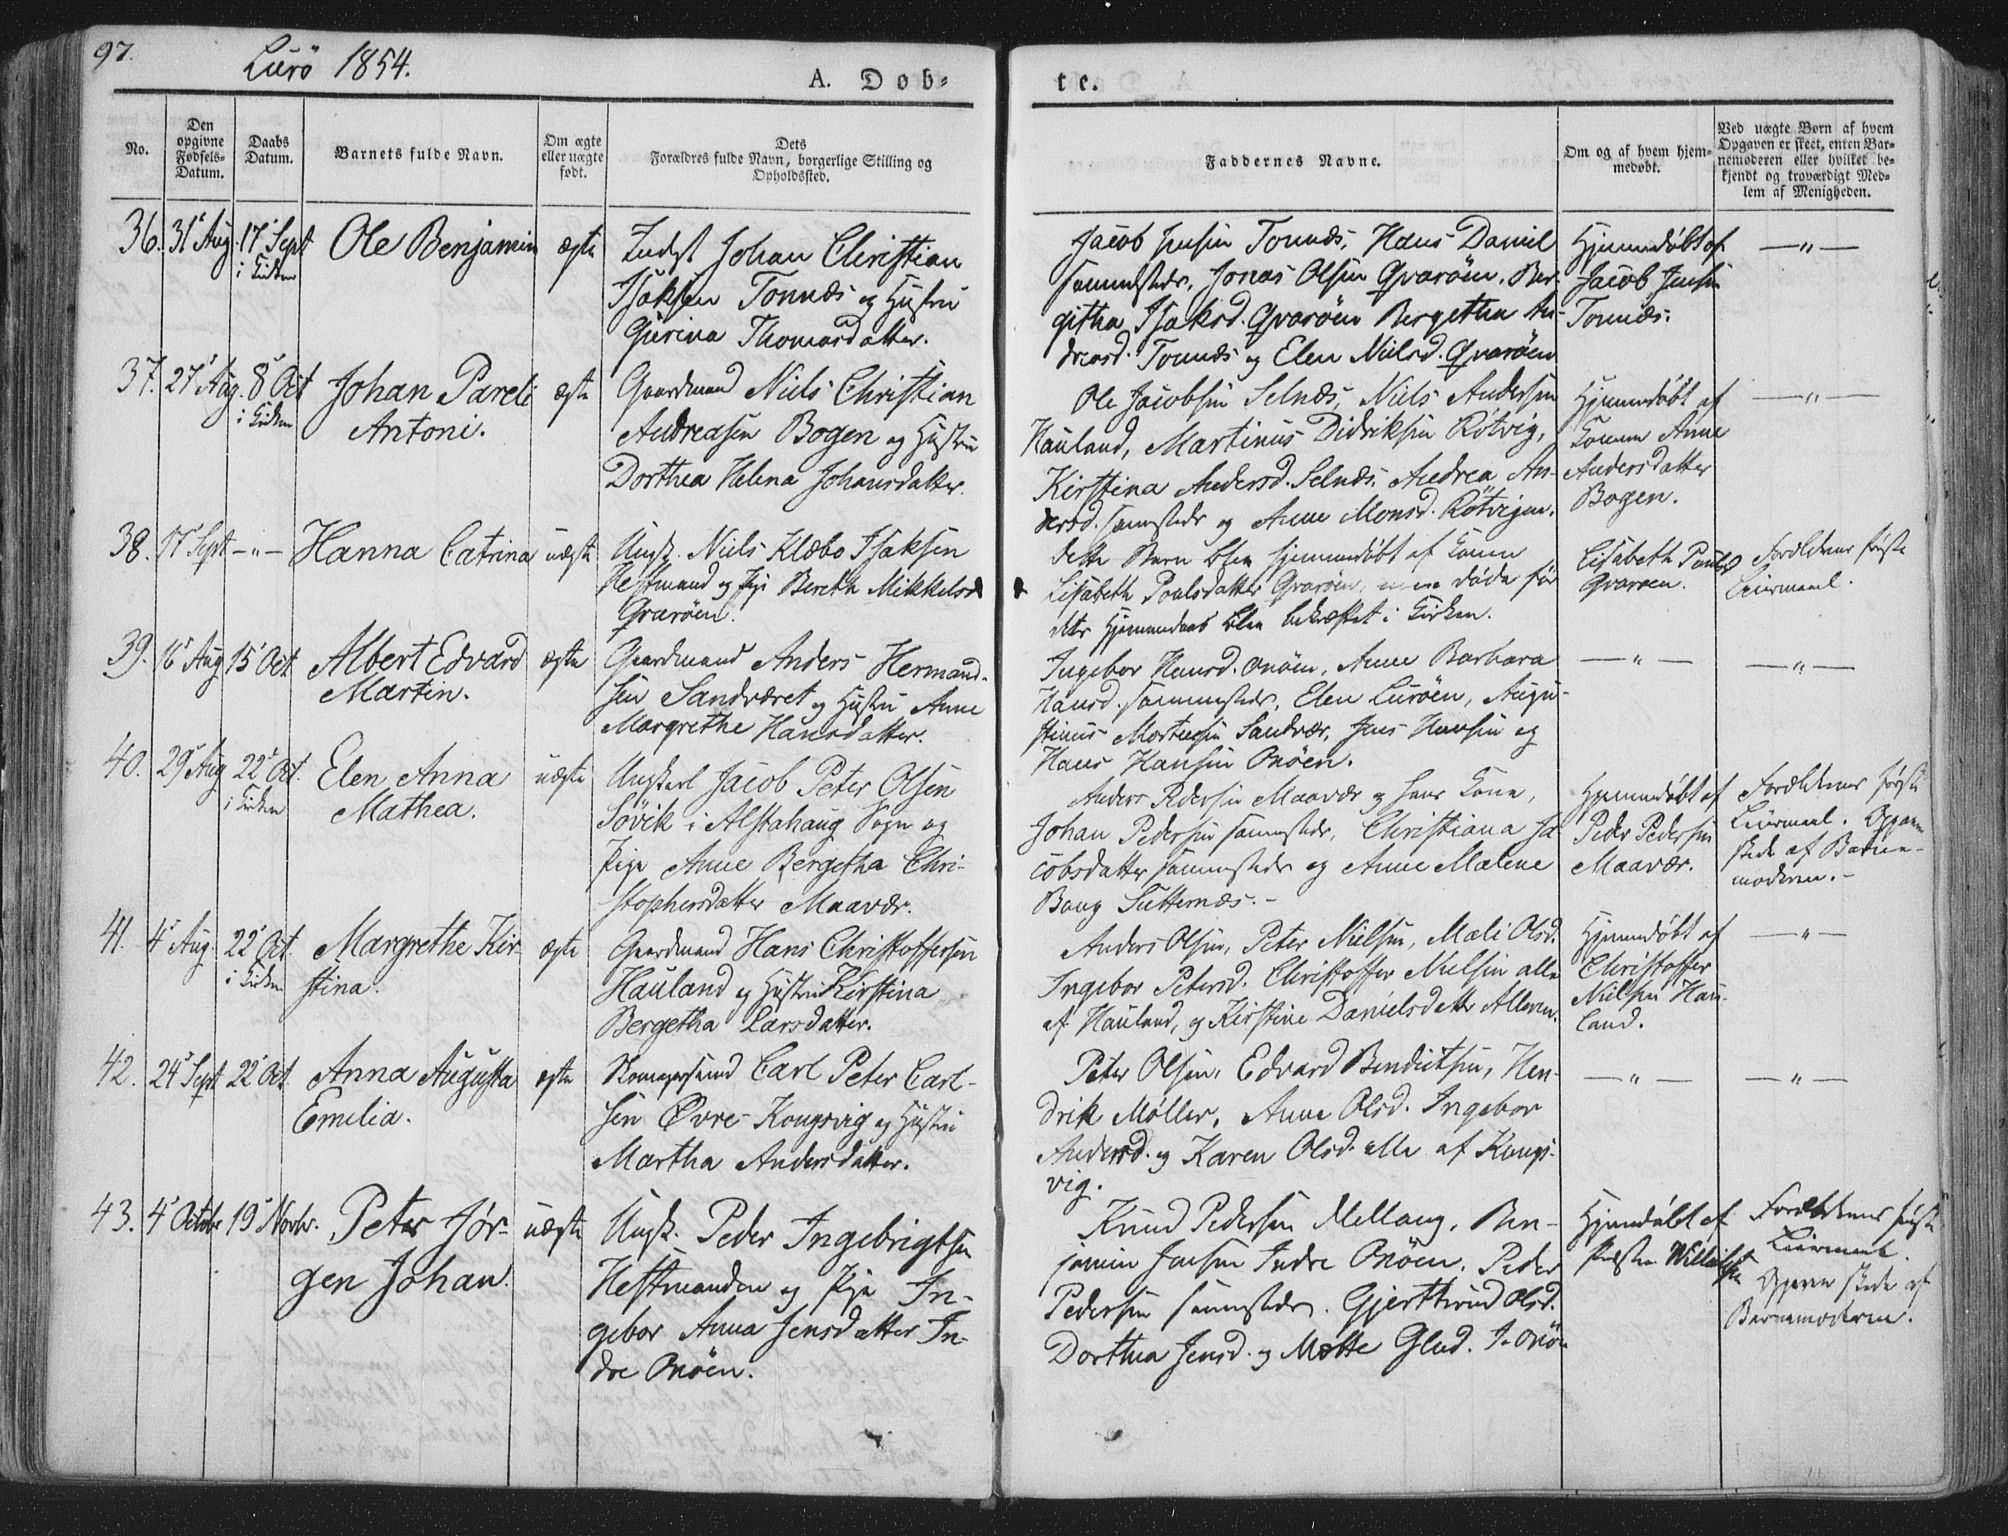 97.
Lurö 1854.
A. Döb=
te.
No.
Den opgivne Fødsels-Datum.
Daabs Datum.
Barnets fulde Navn.
Om ægte eller uægte født.
Dets Forældres fulde Navn, borgerlige Stilling og Opholdssted.
Faddernes Navne.
Om og af hvem hjemmedøbt.
Ved uægte Børn af hvem Opgaven er skeet, enten Barnemoderen eller hvilket bekjendt og troværdigt Medlem af Menigheden.
36. 31 Aug. 17 Sept i Kirken
Ole Benjamin
ægte
Inderst Johan Christian
Isaksen Tonnæs og Hustru
Gurina Thomasdatter.
Jacob Jensen Tonnæs, Hans Daniel
sammesteds, Jonas Olsen Qvarøen, Ber-
githa Isaksd. Qvarøen Bergetha An-
dreasd. Tonnæs og Elen Nielsd. Qvarøen
Hjemmedøbt af
Jacob Jensen
Tonnæs.
—„—
37. 27 Aug. 8 Oct i Kirken
Johan Pareli
Antoni.
ægte
Gaardmand Niels Christian
Andreasen Bogen og Hustru
Dorthea Helena Johansdatter.
Ole Jacobsen Selnæs, Niels Andersen
Hauland, Martinus Didriksen Rötvig,
Kirstina Andersd. Selnæs, Andrea An-
dersd. sammesteds og Anne Monsd. Rötvigen.
Hjemmedøbt af
Konen Anne
Andersdatter
Bogen.
—„—
38. 17 Sept —„—
Hanna Catrina
uægte
Ungk. Niels Klæbo Isaksen
Hestmand og Pige Beretha Mikkelsd
Qvarøen.
dette Barn blev hjemmedøbt af Konen
Lisabeth Poulsdatter Qvarøen, døde før
dets Hjemmedaab blev bekræftet i Kirken.
Lisabeth Poulsd
Qvarøen.
Forældrenes første
Leiermaal.
39. 16 Aug 15 Oct
Albert Edvard
Martin.
ægte
Gaardmand Anders Hermand-
sen Sandværet og Hustru Anne
Margrethe Hansdatter.
Ingebor Hansd. Onøen, Anne Barbara
Hansd. sammesteds, Elen Lurøen, Augu-
stinus Mortensen Sandvær, Jens Hansen og
Hans Hansen Onøen.
—„—
—„—
40. 29 Aug 22 Oct. i Kirken
Elen Anna
Mathea.
uægte
Ungkarl Jacob Peter Olsen
Søvik i Alstahaug Sogn og
Pige Anne Bergetha Chri-
stophersdatter Maavær.
Anders Pedersen Maavær og hans Kone,
Johan Pedersen sammesteds, Christiana Ja
cobsdatter sammesteds og Anne Malene
Bang Sutternæs.-
Hjemmedøbt af
Peder Pedersen
Maavær.
Forældrenes første
Leiermaal. Opgaven
skede af Barne-
moderen.-
41. 4 Aug. 22 Oct. i Kirken
Margrethe Kir-
stina.
ægte
Gaardmand Hans Christoffersen
Hauland og Hustru Kirstina
Bergetha Larsdatter.
Anders Olsen, Peter Nielsen, Mali Olsd.
Ingebor Petersd. Christoffer Nielsen alle
af Hauland, og Kirstine Danielsdatter
Hjemmedøbt af
Christoffer
Nielsen Hau-
land.
—„—
42. 24 Sept 22 Oct
Anna Augusta
Emilia.
ægte
Carl Peter Carl-
sen Øvre Kongsvig og Hustru
Martha Andersdatter.
Peter Olsen, Edvard Bendictsen, Hen-
drik Møller, Anne Olsd. Ingebor
Andersd. og Karen Olsd. alle af Kongs-
vig.
—„—
—„—
43. 4 October 19 Novbr.
Peter Jör-
gen Johan.
uægte
Ungk. Peder Ingebrigtsen
Hestmanden og Pige In-
gebor Anna Jensdatter In-
dre Onøen.
Knud Pedersen Mellang, Ben-
jamin Jensen Indre Onøen. Peder
Pedersen sammesteds. Gjerttrud Olsd.
Dorthea Jensd. og Mette Glad. I. Onøe
Hjemdøbt af
Forældrenes første
Leiermaal.
Opgaven skede af
Barnemoderen.